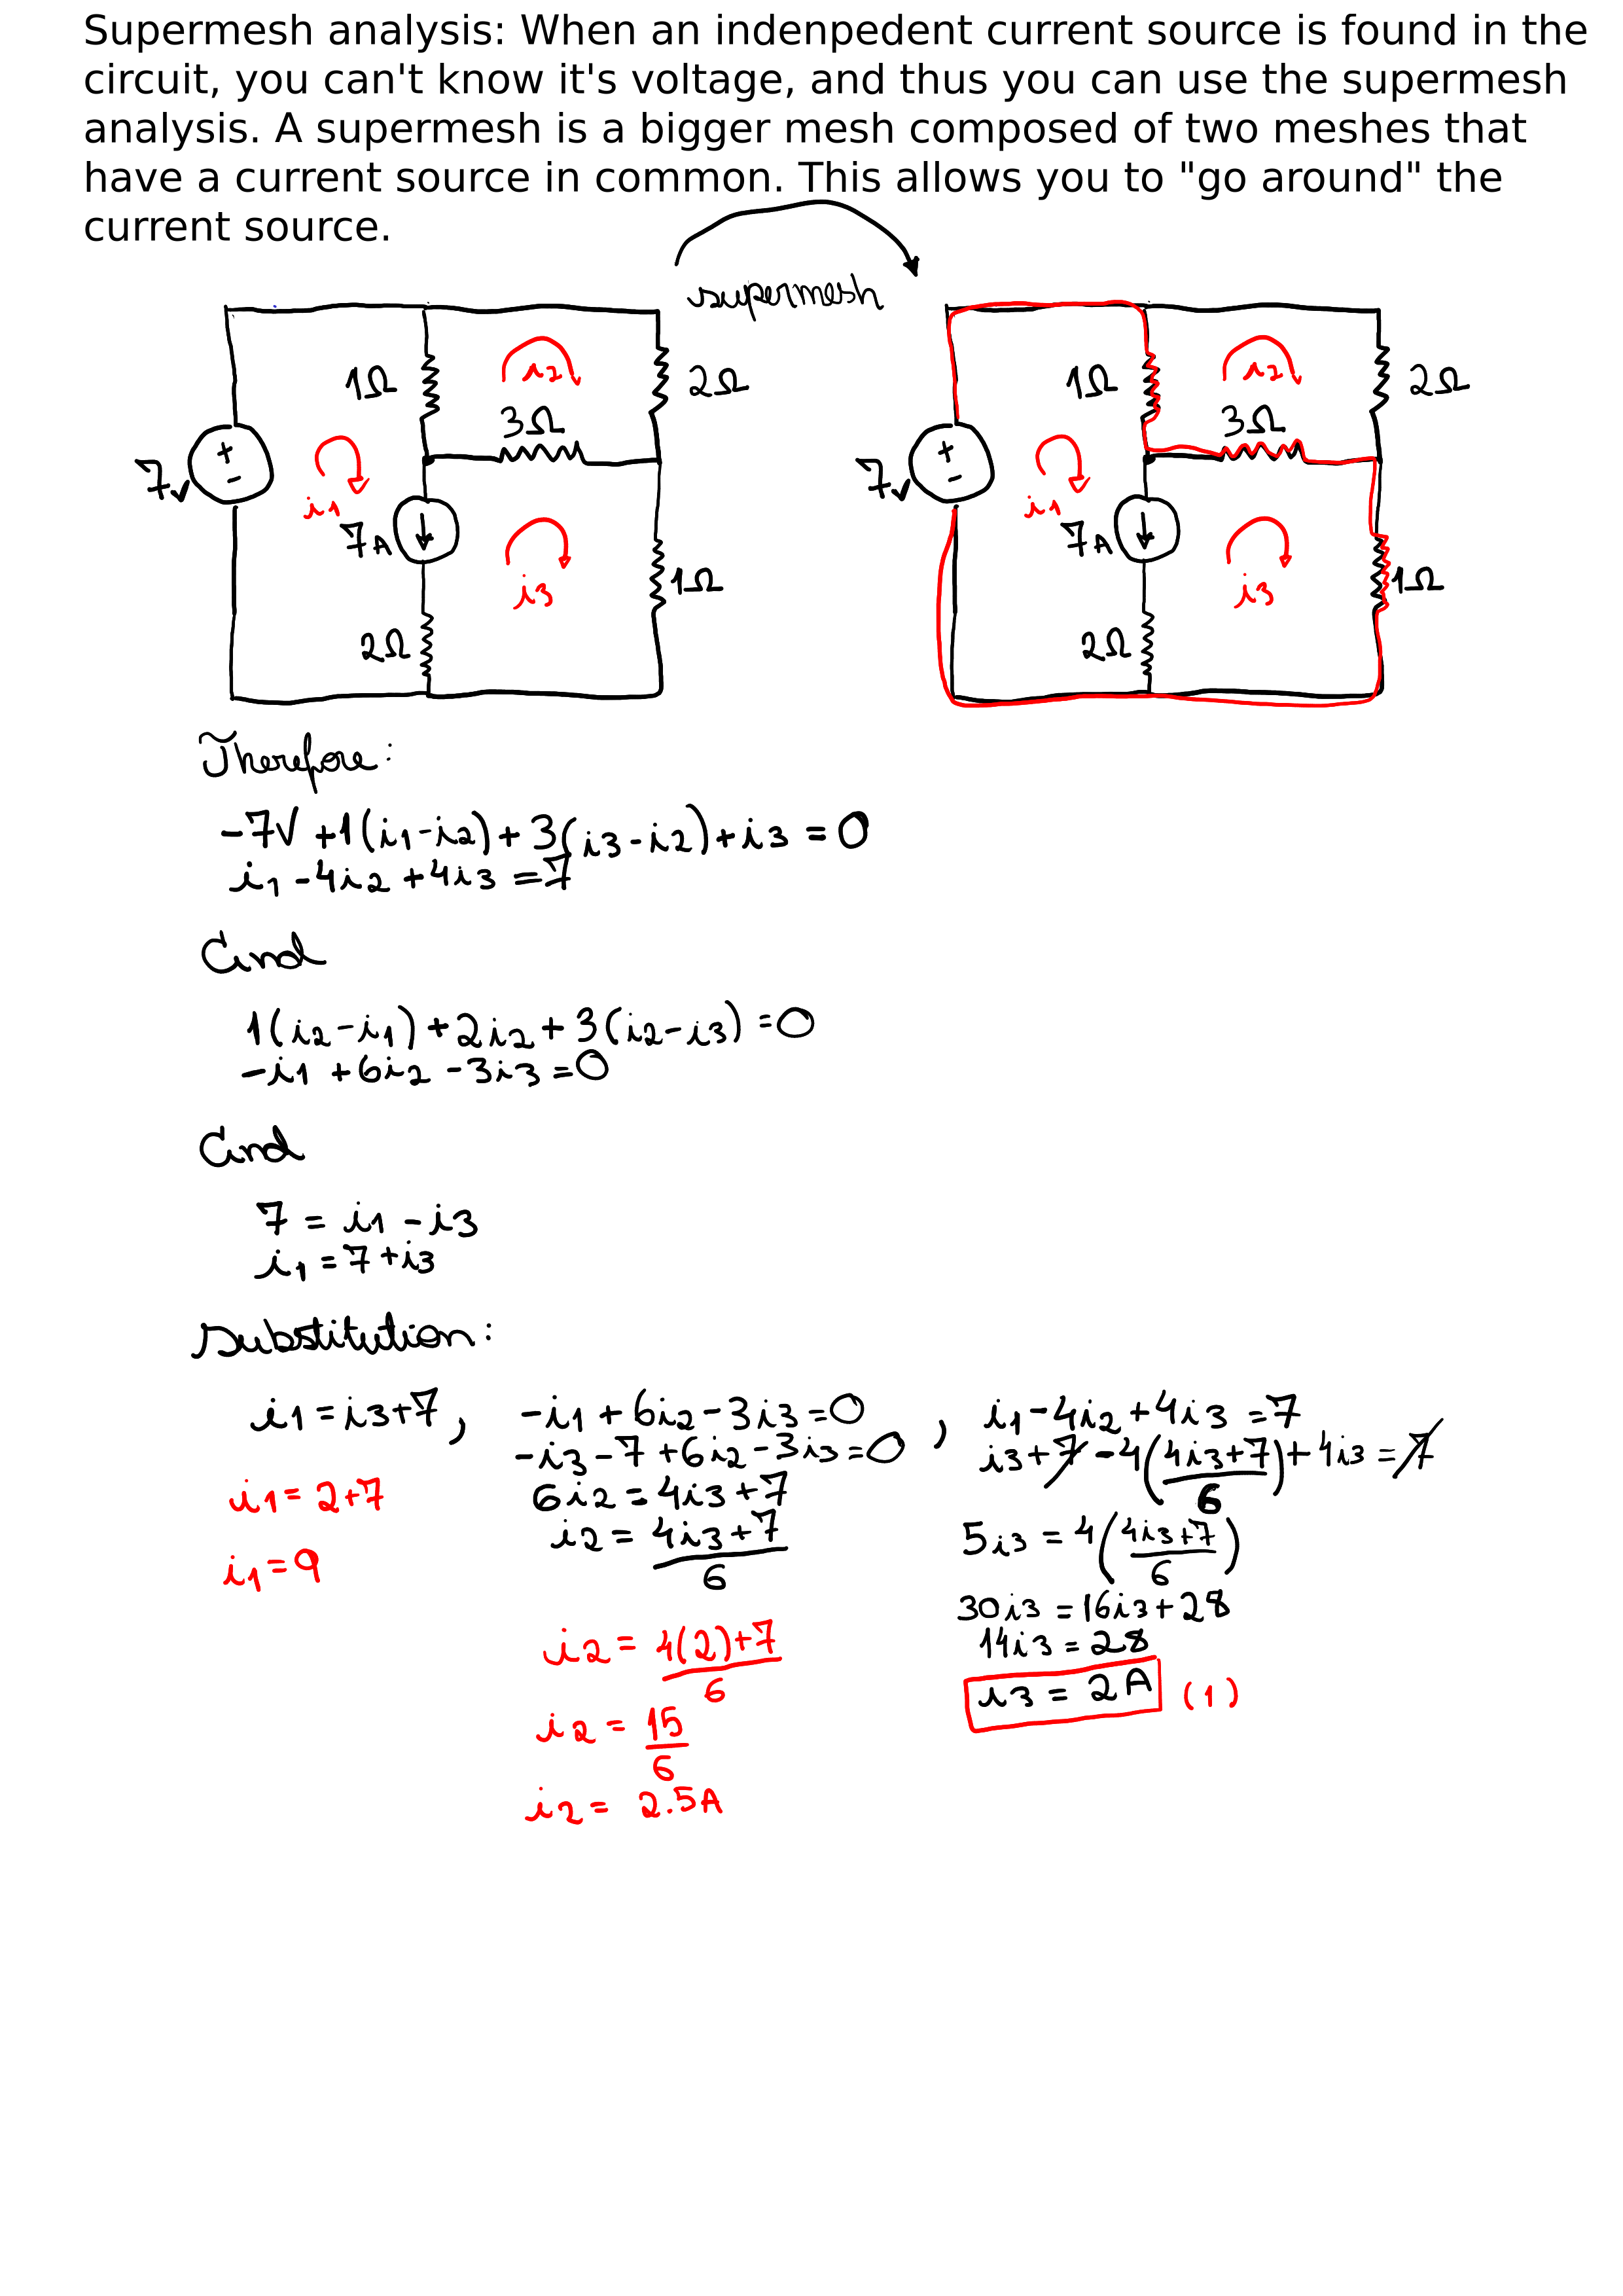 Supermesh analysis: When an indenpedent current source is found in the
circuit, you can't know it's voltage, and thus you can use the supermesh
analysis. A supermesh is a bigger mesh composed of two meshes that
have a current source in common. This allows you to "go around" the
current source.
supermesh
1Ω
i2
2Ω
3Ω
+
-
7V
i1
7A
i3
1Ω
2Ω
1Ω
i2
2Ω
3Ω
+
-
7V
i1
7A
i3
1Ω
2Ω
Therefore:
-7V +1(i1-i2)+3(i3-i2)+i3=0
i1-4i2+4i3=7
And
1(i2-i1)+2i2+3(i2-i3)=0
-i1+6i2-3i3=0
And
7=i1-i3
i1=7+i3
Substitution:
i1=i3+7,
i1=2+7
i1=9
-i1+6i2-3i3=0,
-i3-7+6i2-3i3=0
6i2=4i3+7
i2=4i3+7
6
i2=4(2)+7
6
i2=15
6
i2=2.5A
i1-4i2+4i3=7
i3+7-4(4i3+7)+4i3=7
6
5i3=4(4i3+7)
6
30i3=16i3+28
14i3=28
i3=2A (1)